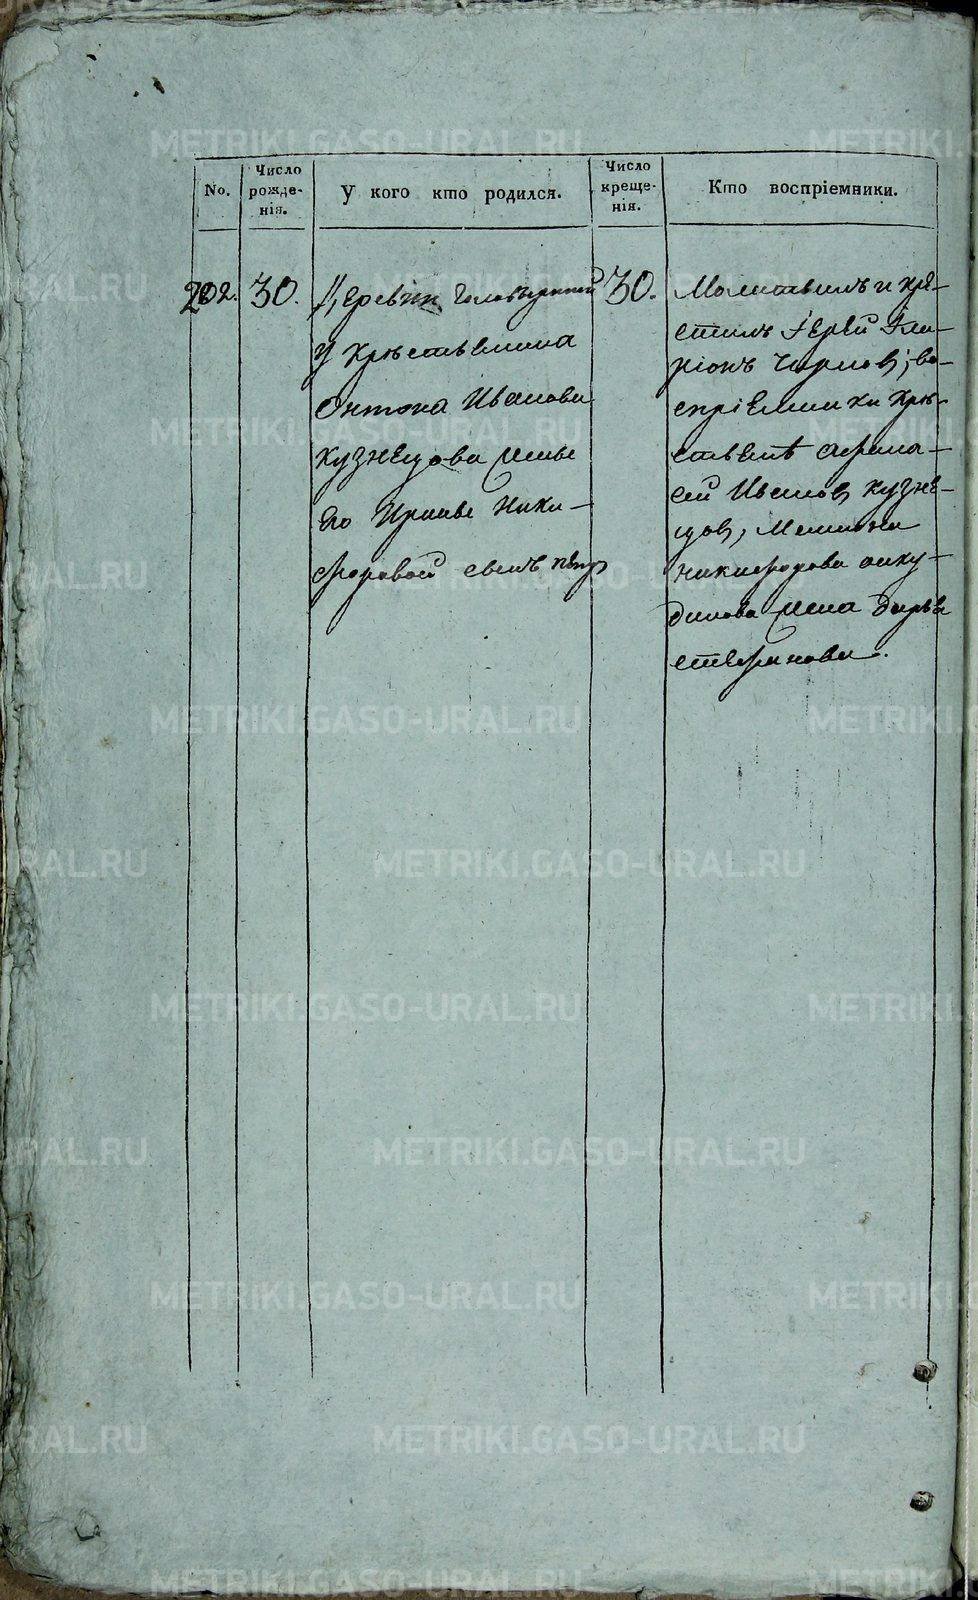 No.
Число рожде- нія.
У кого кто родился.
Число креще- нія.
Кто воспріемники.
202.
30.
Деревни
у крестьянина
Антона Иванова
Кузнецова жены
его Ирины Ники-
форовой сынъ Петръ
30.
Молитвилъ и кре-
стилъ Іерей Ила-
ріонъ Чирков; во-
спріемники кре-
стьяне Афана-
сей Иванов Кузне-
цов,
Никифорова Анку-
динова жена Дарья
Стефанова.
METRIKI.GASO-URAL.RU